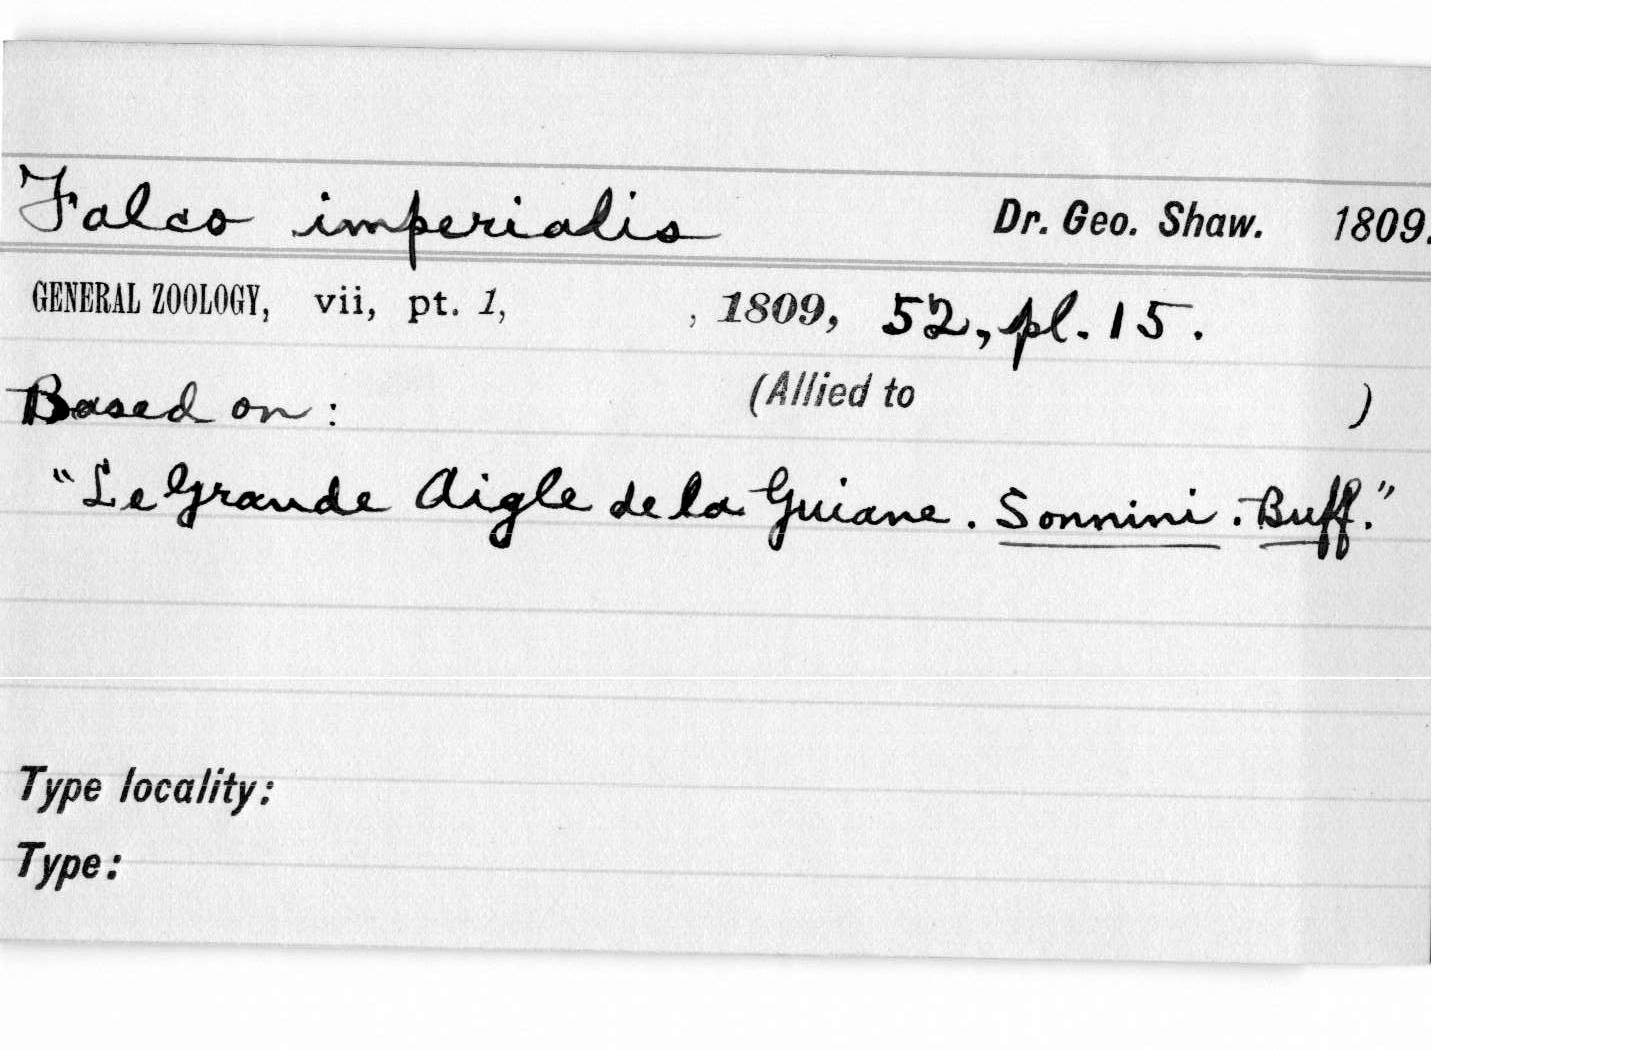 Falco imperialis Dr. Geo. Shaw. 1809.
GENERAL ZOOLOGY, vii, pt. 1, , 1809, 52, pl. 15.
Based on: (Allied to )
"Le Grande Aigle de la Guiane. Sonnini. Buff."
Type locality:
Type: